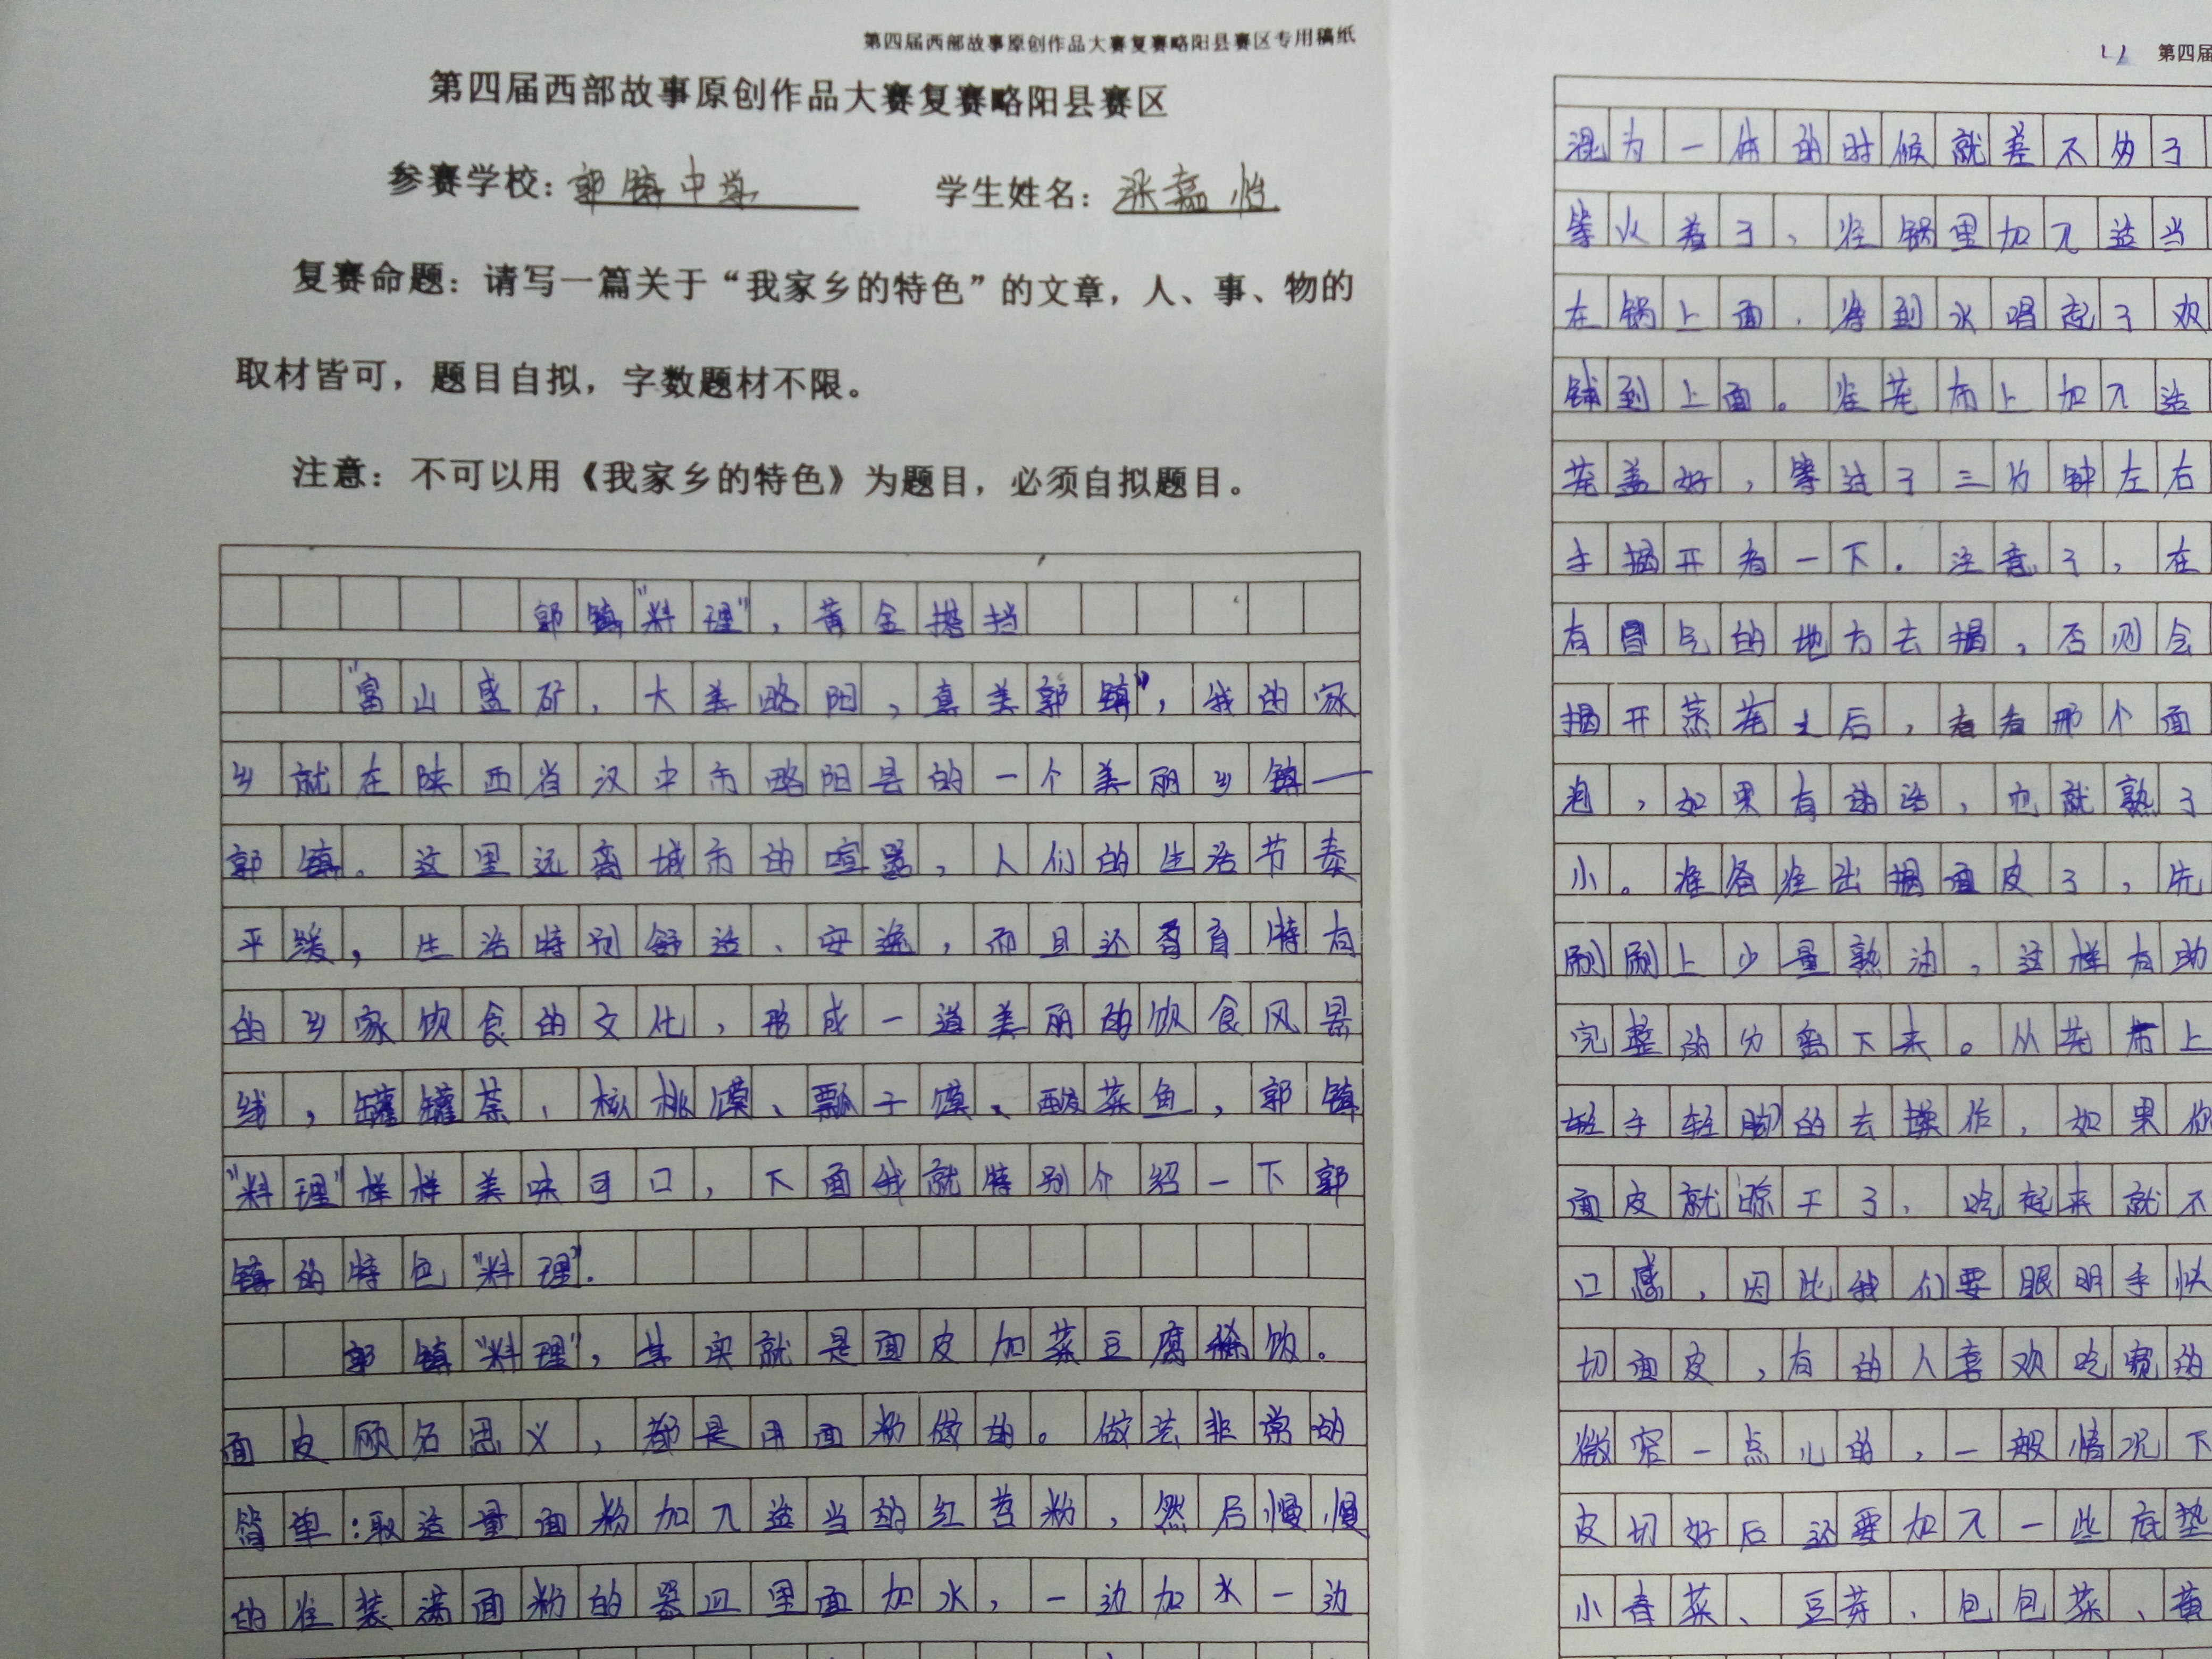 第四届西部故事原创作品大赛复赛略阳县赛区专用稿纸
第四届西部故事原创作品大赛复赛略阳县赛区
参赛学校：郭镇中学 学生姓名：张嘉怡
复赛命题：请写一篇关于“我家乡的特色”的文章，人、事、物的
取材皆可，题目自拟，字数题材不限。
注意：不可以用《我家乡的特色》为题目，必须自拟题目。
郭镇“料理”，黄金搭挡
“富山盛矿，大美略阳，真美郭镇”，我的家
乡就在陕西省汉中市略阳县的一个美丽乡镇—
郭镇。这里远离城市的喧嚣，人们的生活节奏
平缓，生活特别舒适、安逸，而且还有特有
的乡家饮食的文化，形成一道美丽的饮食风景
线，罐罐茶、核桃馍、瓢子馍、酸菜鱼，郭镇
“料理”样样美味可口，下面我就特别介绍一下郭
镇的特色“料理”.
郭镇“料理”，其实就是面皮加菜豆腐稀饭。
面皮顾名思义，都是用面粉做的。做法非常的
简单:取适量面粉加入适当的红苕粉，然后慢慢
的往装满面粉的器皿里面加水，一边加水一边
第四届
混为一体的时候就差不多了
等火着了，往锅里加入适当
在锅上面，等到水唱起了欢
铺到上面。往笼布上加入适
笼盖好，等过了三分钟左右
手揭开看一下.注意了，在
有冒气的地方去揭，否则会
揭开蒸笼之后，看看那个面
泡，如果有的话，也就熟了
小。准备往出揭面皮了，先
刷刷上少量熟油，这样有助
完整的分离下来。从笼布上
轻手轻脚的去操作，如果你
面皮就晾干了，吃起来就不
口感，因此我们要眼明手快
切面皮，有的人喜欢吃宽的
微窄一点儿的，一般情况下
皮切好后还要加入一些底垫
小春菜、豆芽、包包菜、黄